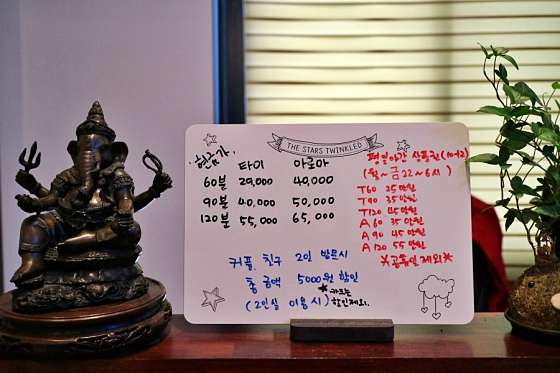 THE STARS TWINKLED
현금가 타이 아로마
60분 29,000 40,000
90분 40,000 50,000
120분 55,000 65,000
커플, 친구 2인 방문시
총 금액 5000원 할인
(2인실 이용시)
카드는
할인제외.
평일야간 상품권(10+2)
(월~금 22~6시)
T60 25만원
T90 35만원
T120 45만원
A60 35만원
A90 45만원
A120 55만원
*공휴일제외*